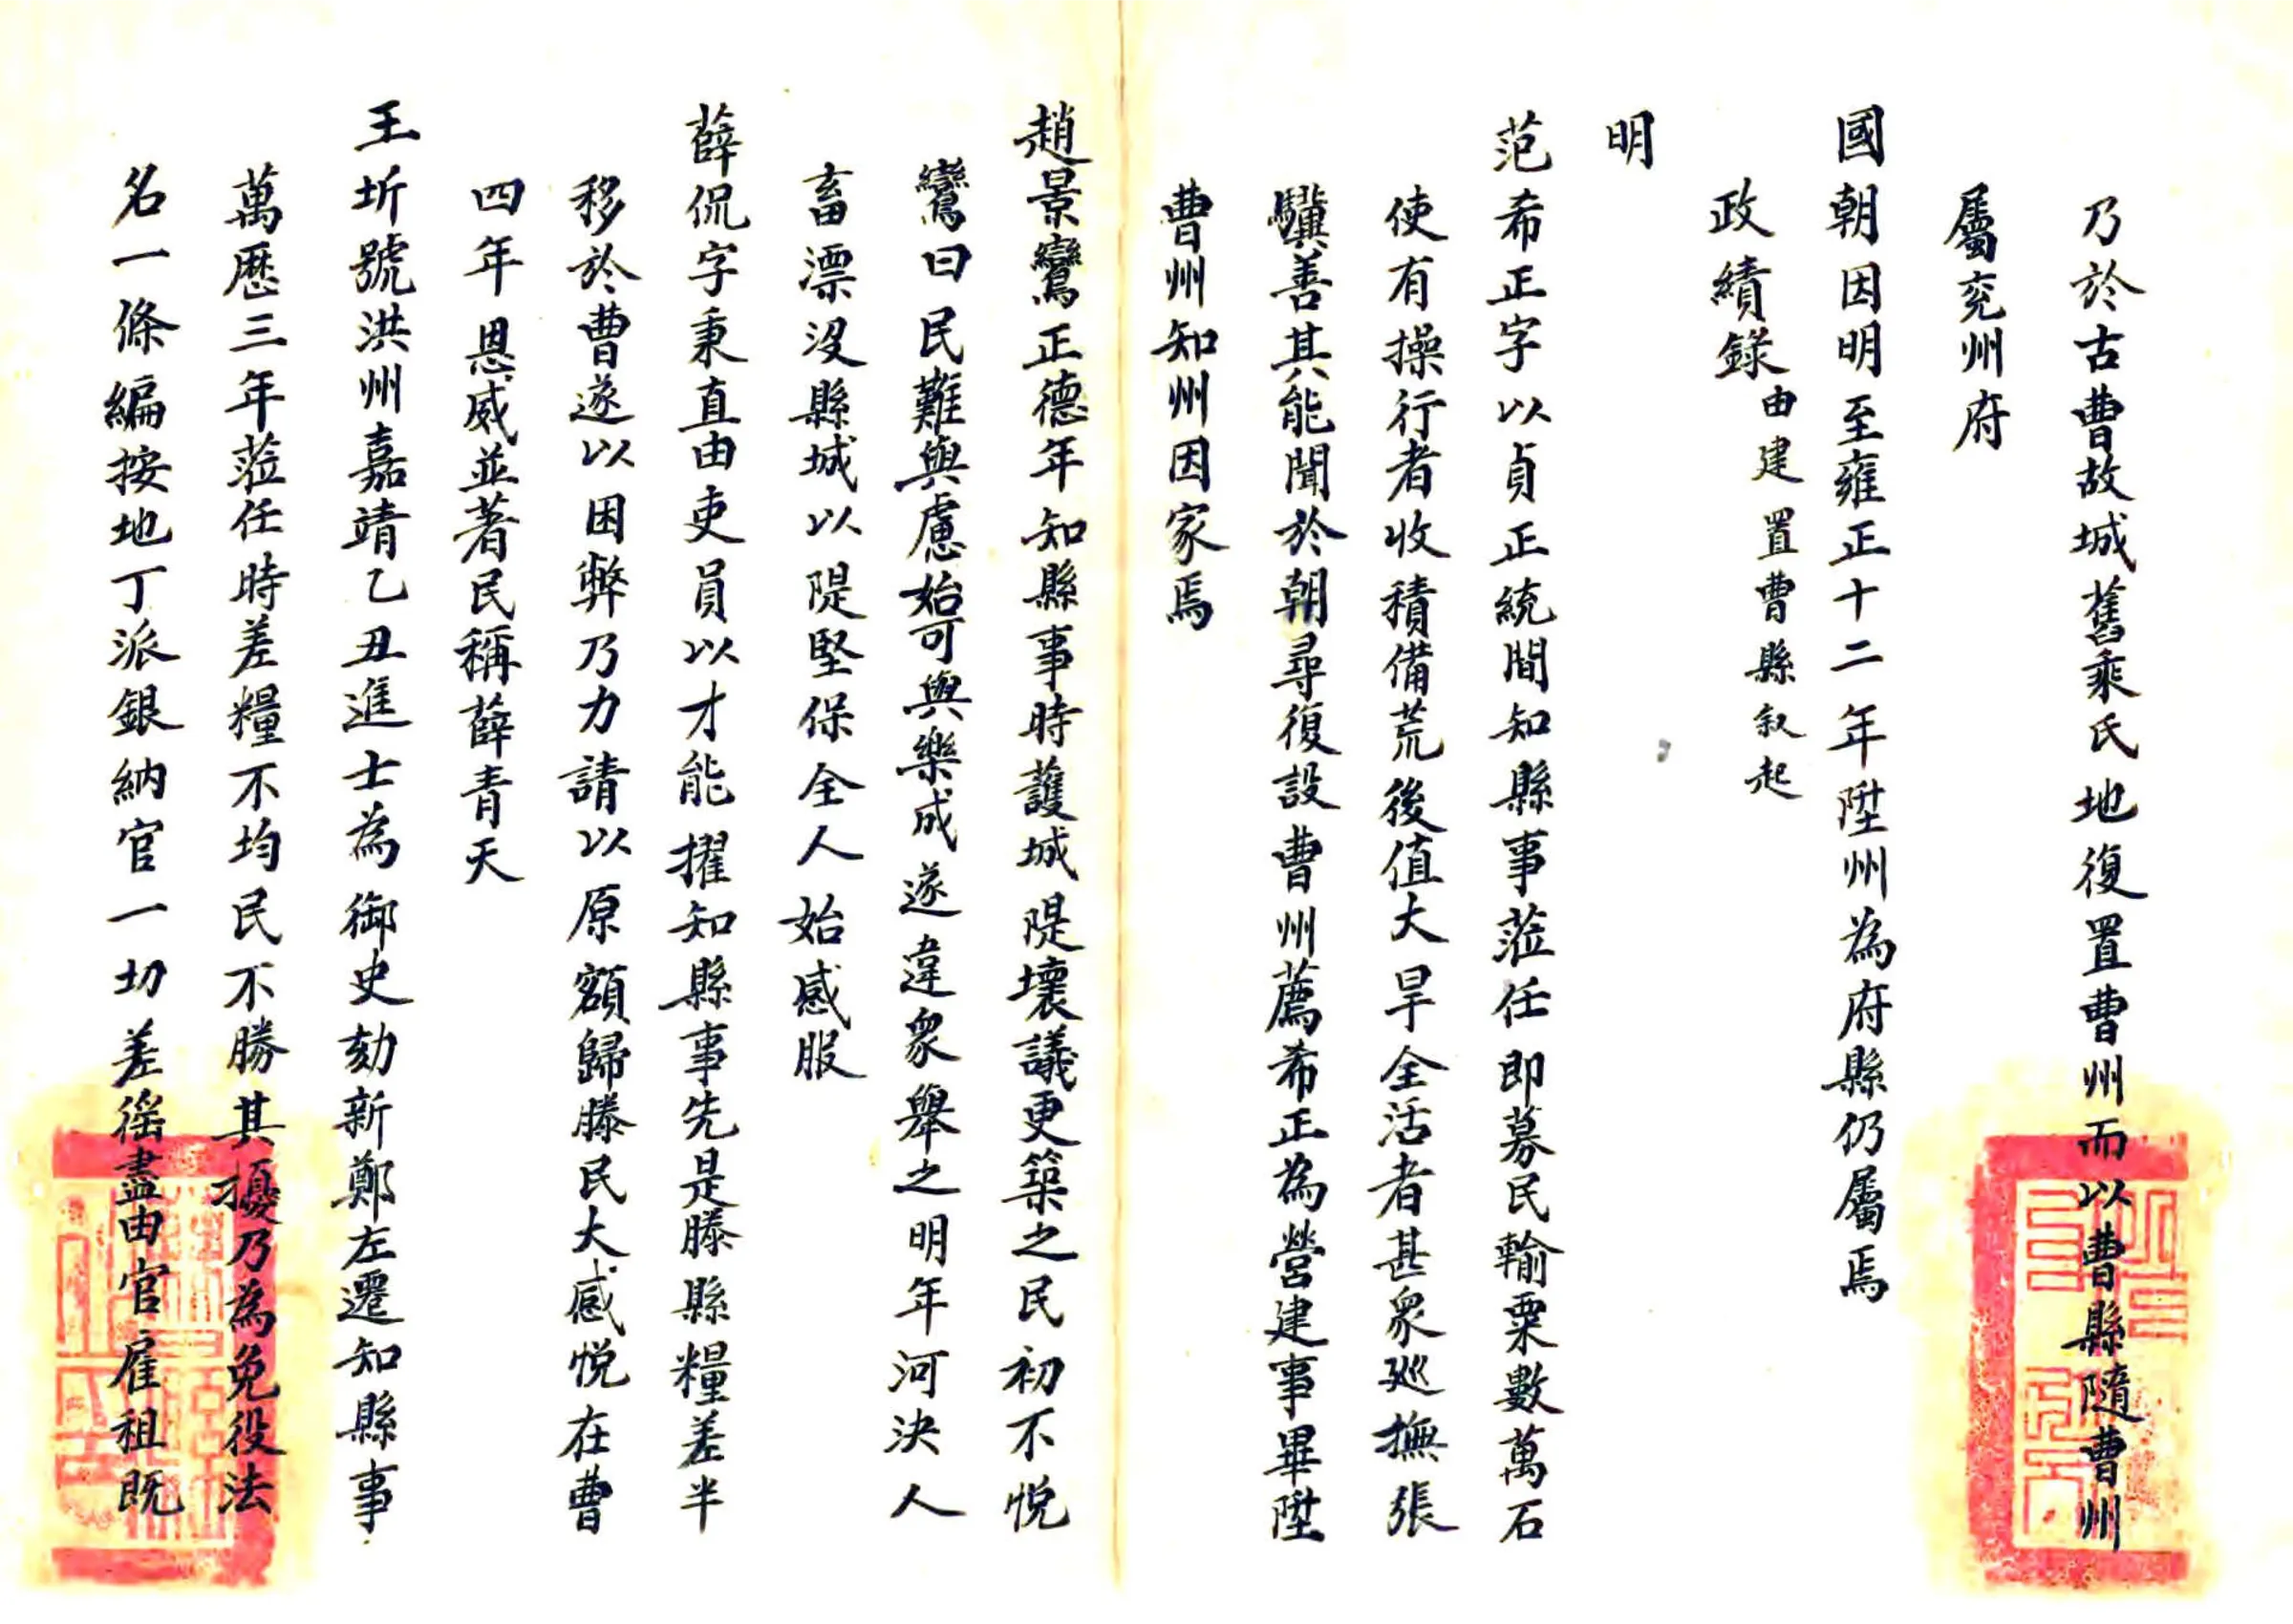 乃於古曹故城舊乘氏地復置曹州而以曹縣隨曹州
屬兖州府
國朝因明至雍正十二年陞州為府縣仍屬焉
政績錄由建置曹縣叙起
明
范希正字以貞正統間知縣事蒞任即募民輸粟數萬石
使有操行者收積備荒後值大旱全活者甚衆廵撫張
驥善其能聞於朝尋復設曹州薦希正為營建事畢陞
曹州知州因家焉
趙景鸞正德年知縣事時護城隄壞議更築之民初不悅
鸞曰民難與慮始可與樂成遂違衆舉之明年河決人
畜漂沒縣城以隄堅保全人始感服
薛侃字秉直由吏員以才能擢知縣事先是滕縣糧差半
移於曹遂以困弊乃力請以原額歸滕民大感悅在曹
四年恩威並著民稱薛青天
王圻號洪州嘉靖乙丑進士為御史劾新鄭左遷知縣事
萬歷三年蒞任時差糧不均民不勝其擾乃為免役法
名一條編按地丁派銀納官一切差徭盡由官雇租既